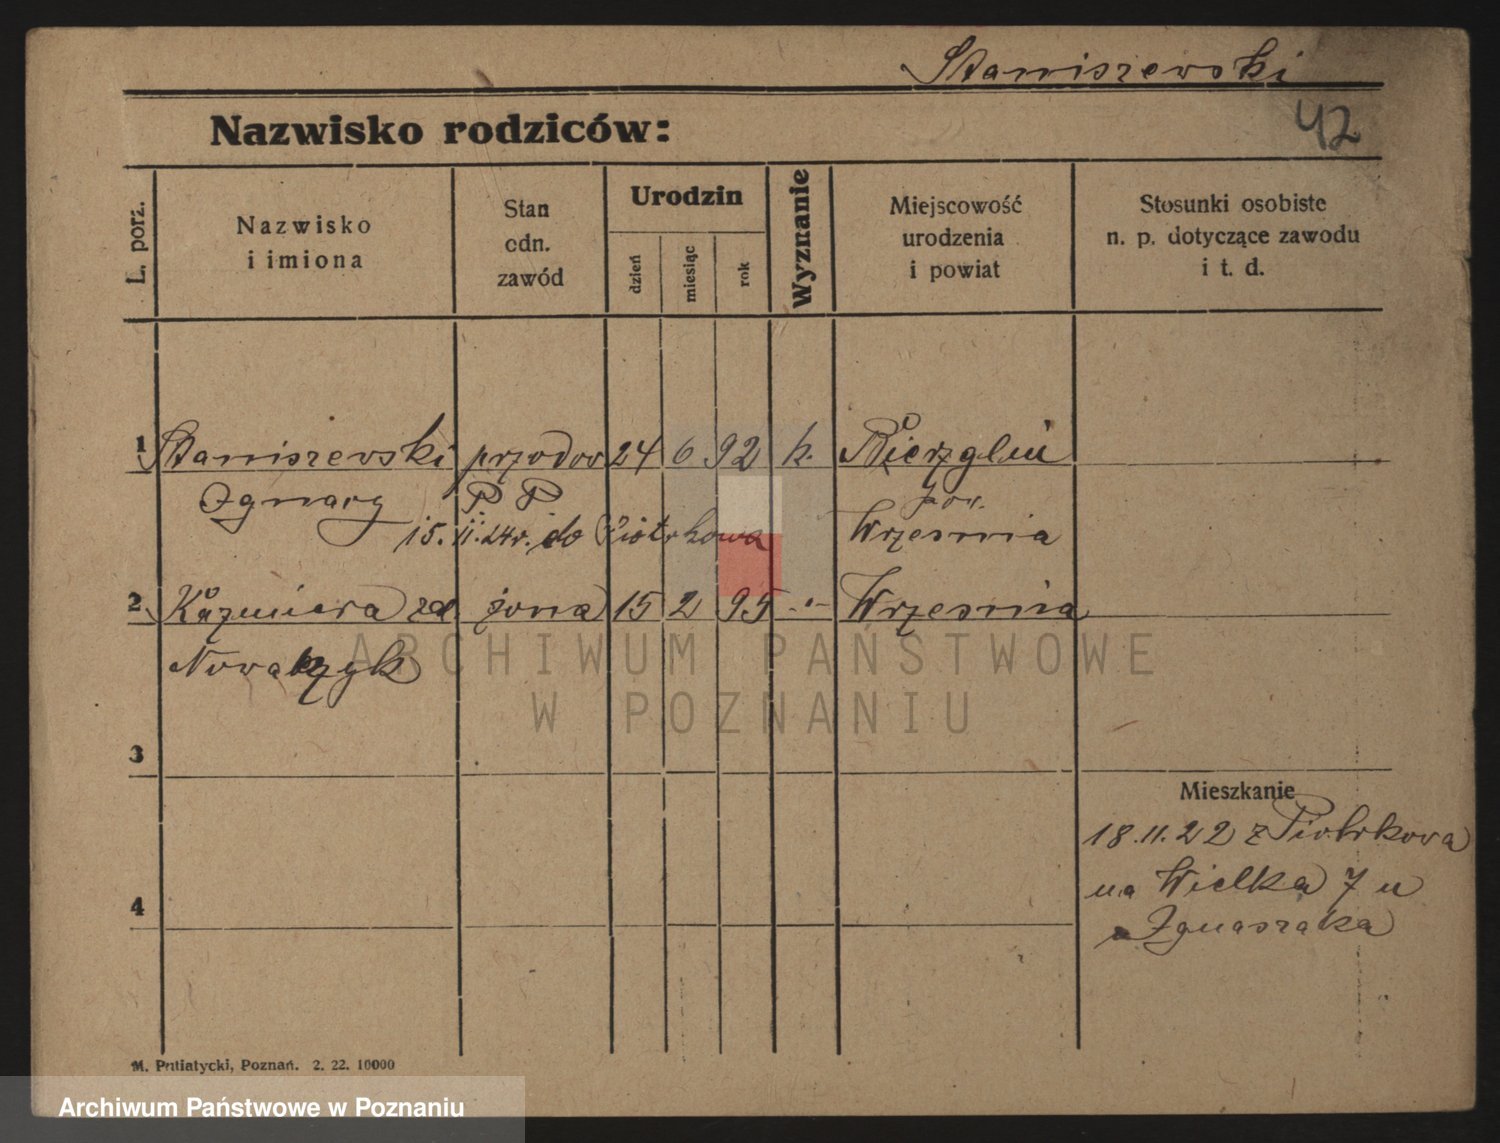 Staniszewski
42
Nazwisko rodziców:
L. porz.
Nazwisko
i imiona
Stan
odn.
zawód
Urodzin
dzień
miesiąc
rok
Wyznanie
Miejscowość
urodzenia
i powiat
Stosunki osobiste
n. p. dotyczące zawodu
i t. d.
1 Staniszewski przodow 24 6 92 k. Bierzglin
Ignacy P P pow.
15. II. 24r. do Piotrkowa Wrzesnia
2 Kazmiera zd. żona 15 2 95 -"- Wrzesnia
Nowaczyk
3
Mieszkanie
18.11.22 z Piotrkowa
na Wielka 7 u
Ignaszaka
4
M. Putiatycki, Poznań. 2. 22. 10000
ARCHIWUM PAŃSTWOWE
W POZNANIU
Archiwum Państwowe w Poznaniu